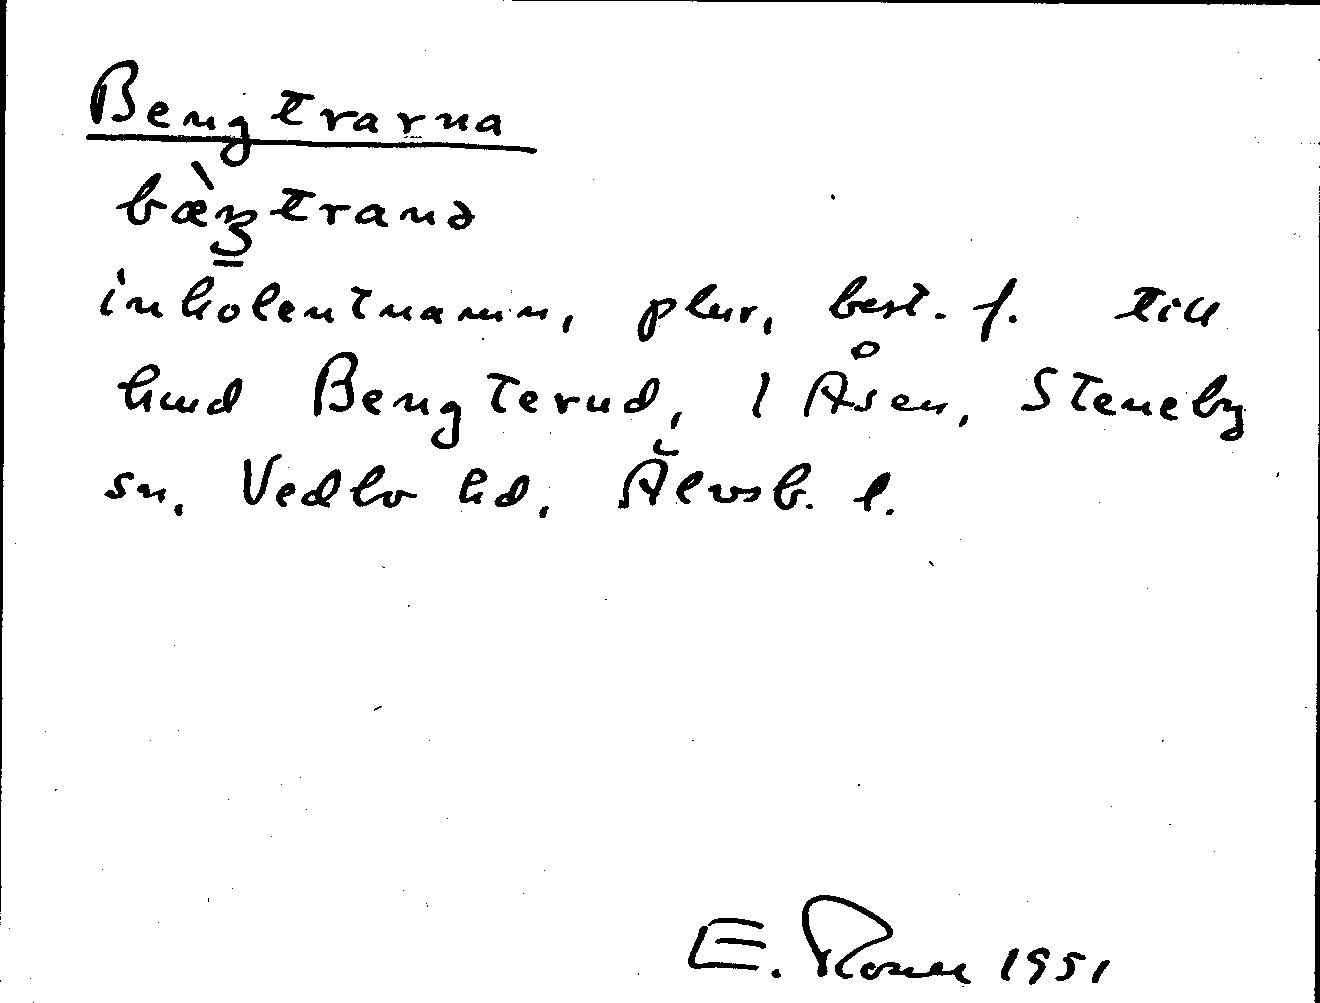 Bengtrarna
bæ̀ꜧtranə
inkolentnamn, plur. best. f. till
hmd Bengterud, 1 Åsen, Steneby
sn, Vedbo hd, Älvsb. l.
E. Rosell 1951